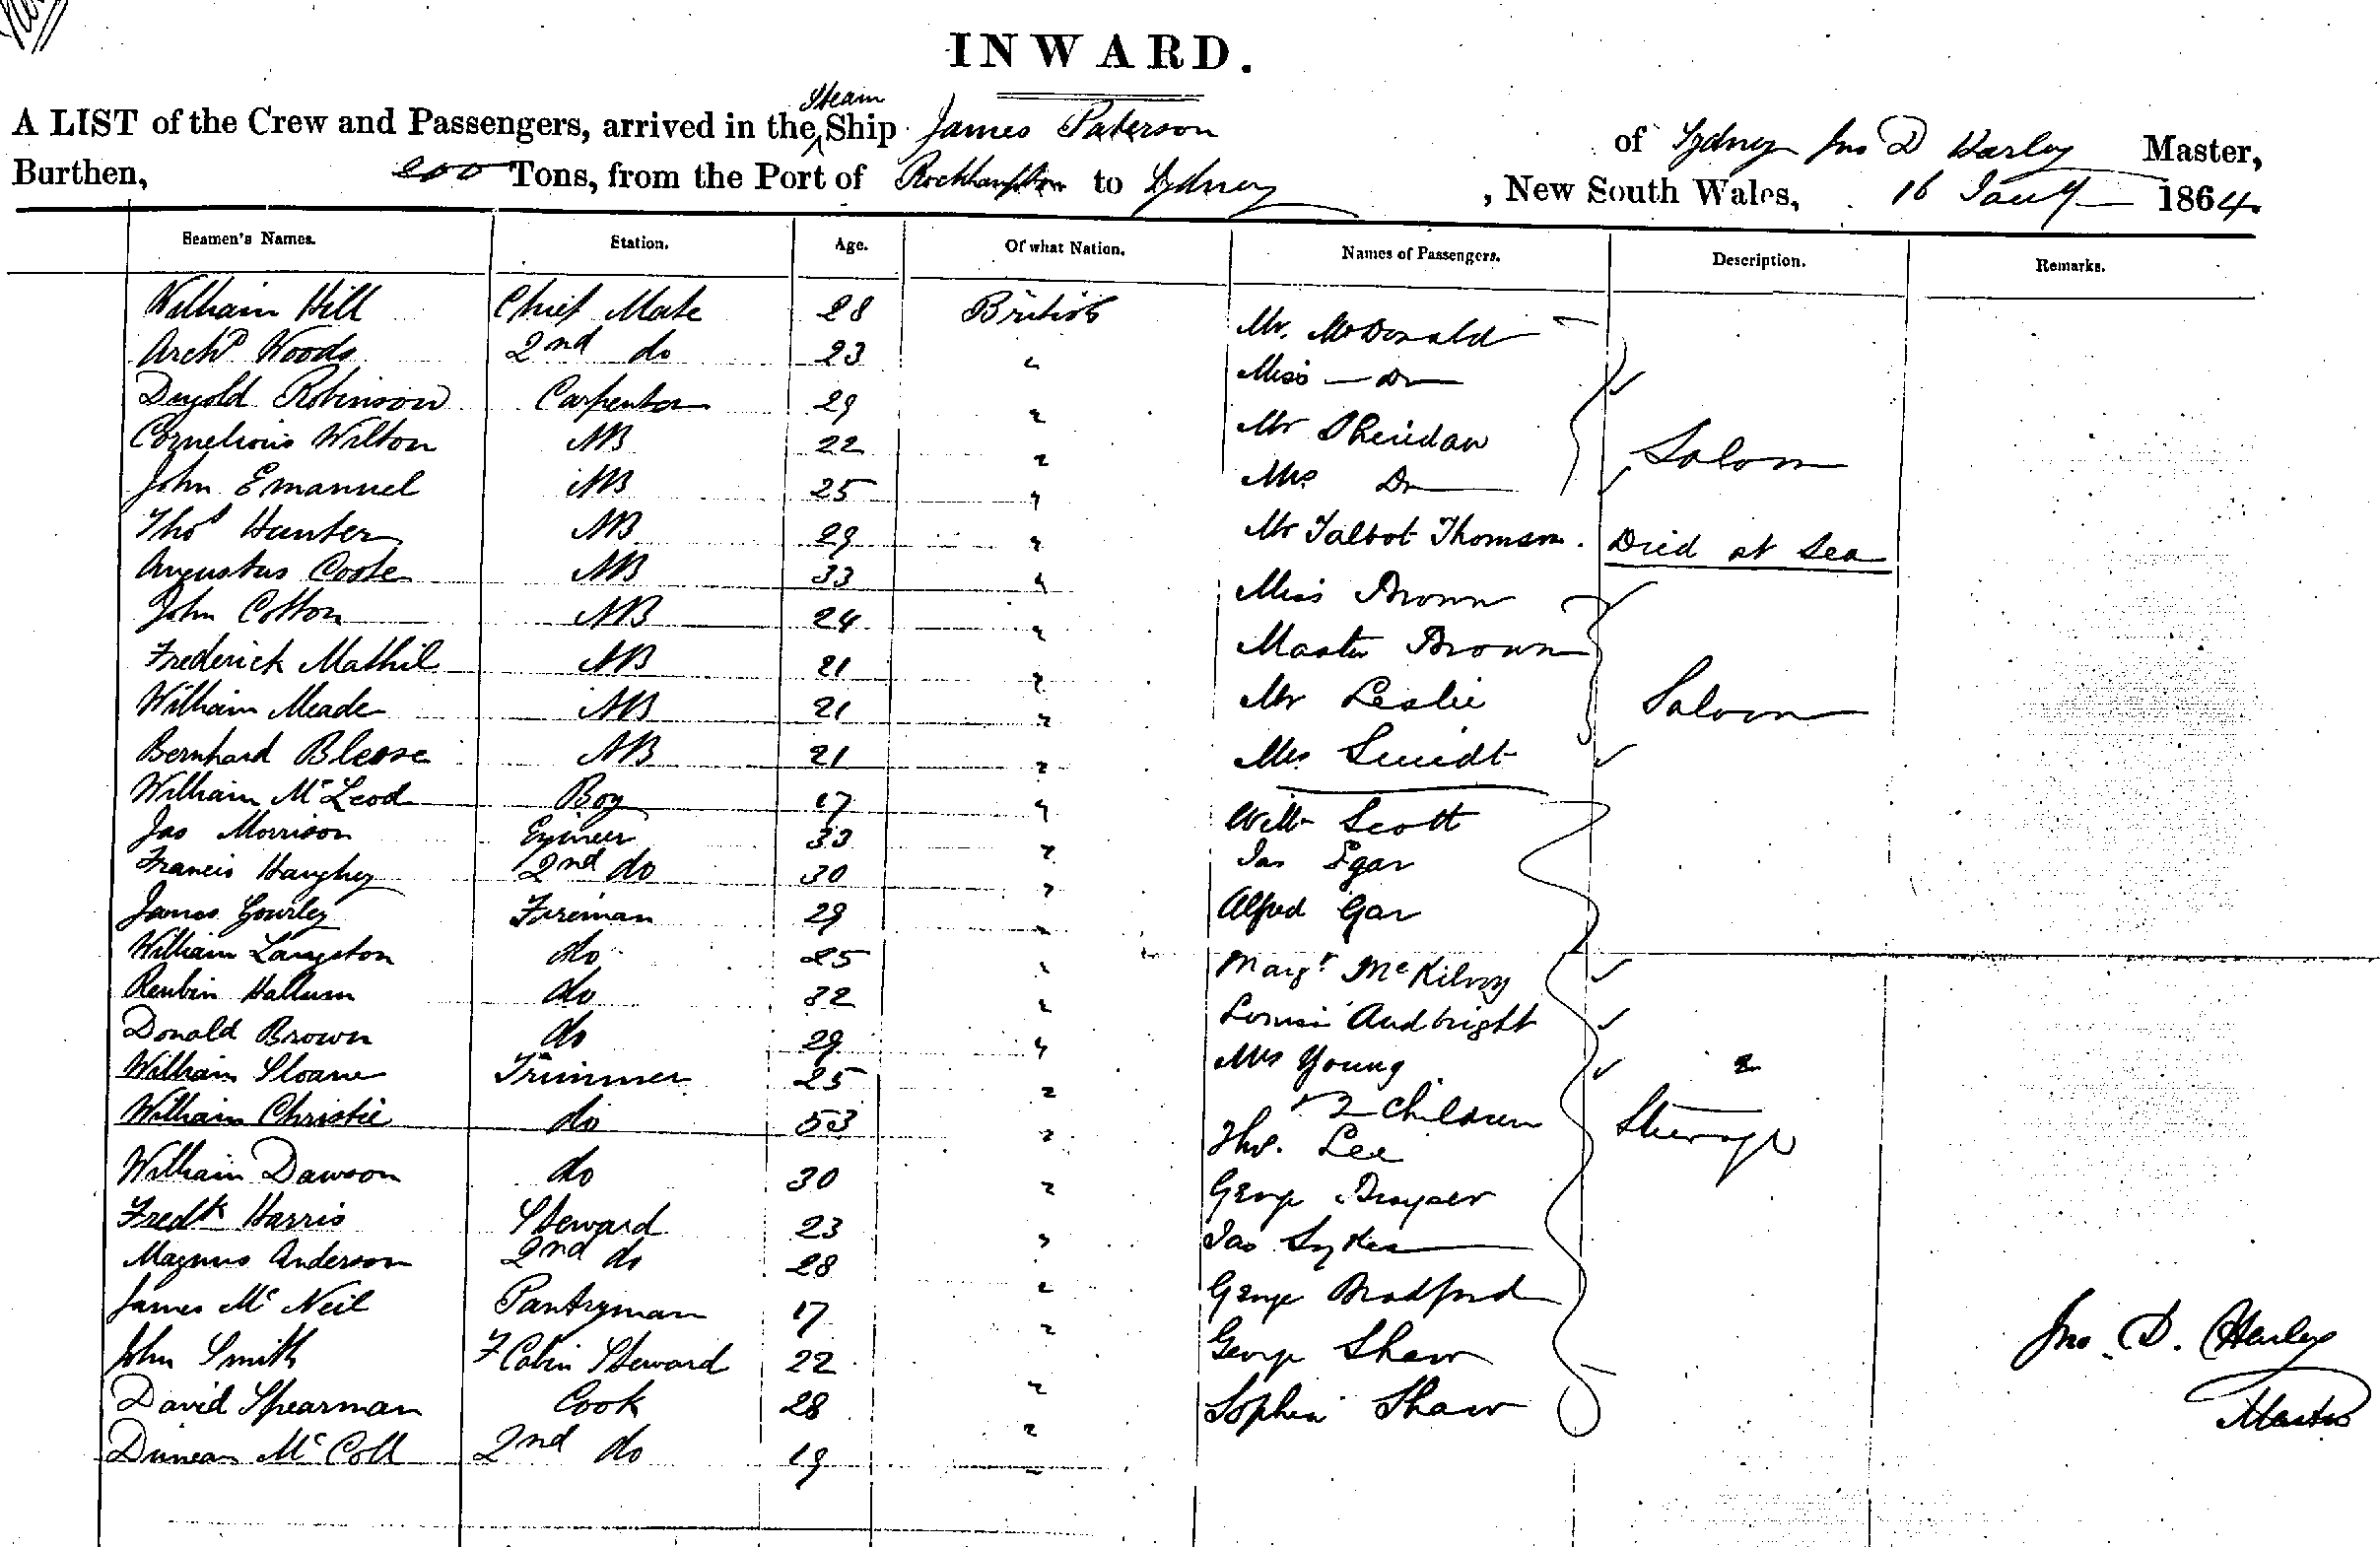 INWARD.
A LIST of the Crew and Passengers, arrived in the Steam Ship James Paterson of Sydney Jno D Harley Master,
Burthen, 200 Tons, from the Port of Rockhampton to Sydney, New South Wales, 16 Jany 1864.
Seamen's Names. Station. Age. Of what Nation. Names of Passengers. Description. Remarks.
William Hill Chief Mate 28 British Mr. McDonald
Archd Woods 2nd do 23 " Miss Do
Dugold Robinson Carpenter 29 " Mr Sheridan
Cornelious Wilton AB 22 " Mrs Do Saloon
John Emanuel AB 25 "
Thos Hunter AB 29 " Mr Talbot Thomson. Died at Sea
Augustus Coote AB 33 " Miss Brown
John Cotton AB 24 " Master Brown
Frederick Mathil AB 21 " Mr Leslie Saloon
William Meade AB 21 " Mrs Smidt
Bernhard Blesse AB 21 "
William McLeod Boy 17 " Willm Scott
Jas Morrison Engineer 33 " Jas Egar
Francis Haughey 2nd do 30 " Alfred Gar
James Gourley Fireman 29 "
William Langston do 25 " Margt McKilroy
Reubin Hallum do 32 " Louisa Audbright
Donald Brown do 29 " Mrs Young
William Sloane Trimmer 25 " 2 Children Steerage
William Christie do 53 " Thos. Lee
William Dawson do 30 " George
Fredk Harris Steward 23 " Jas Sykes
Magnus Anderson 2nd do 28 " George Bradford
James McNeil Pantryman 17 " George Shaw Jno. D. Harley
John Smith F Cabin Steward 22 " Sophia Shaw Master
David Spearman Cook 28 "
Duncan McColl 2nd do 19 "